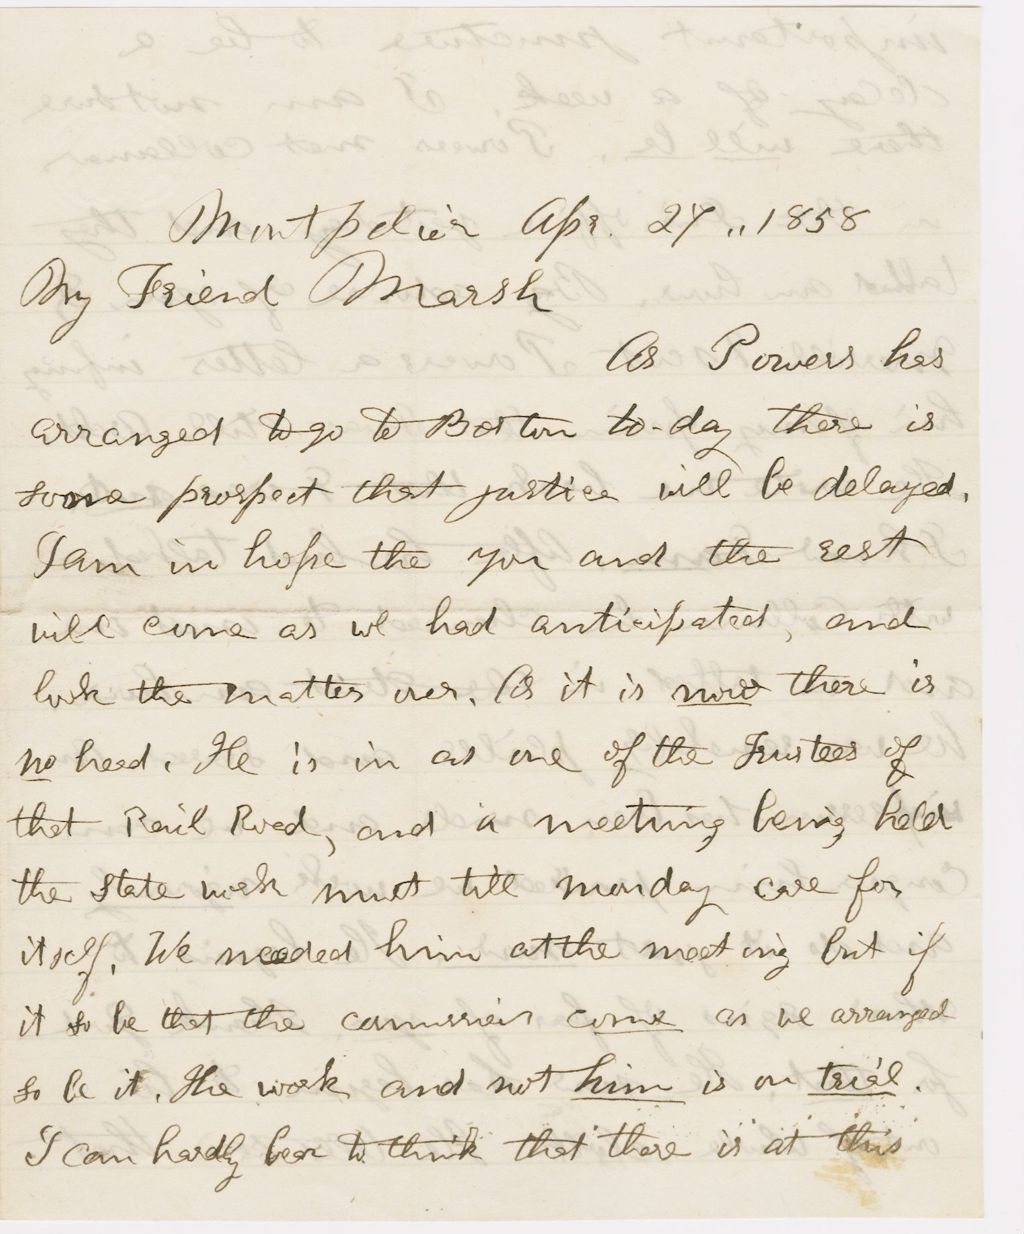 Montpelier Apr. 27,, 1858
My Friend Marsh
As Powers has
arranged to go to Boston to-day there is
some prospect that justice will be delayed.
I am in hope the you and the rest
will come as we had anticipated, and
look the matter over. As it is now there is
no head. He is in as one of the Trustees of
that Rail Road, and a meeting being held
the State work must till monday care for
itself. We needed him at the meeting but if
it so be that the come as we arranged
so be it. The work and not him is on trial.
I can hardly bear to think that there is at this